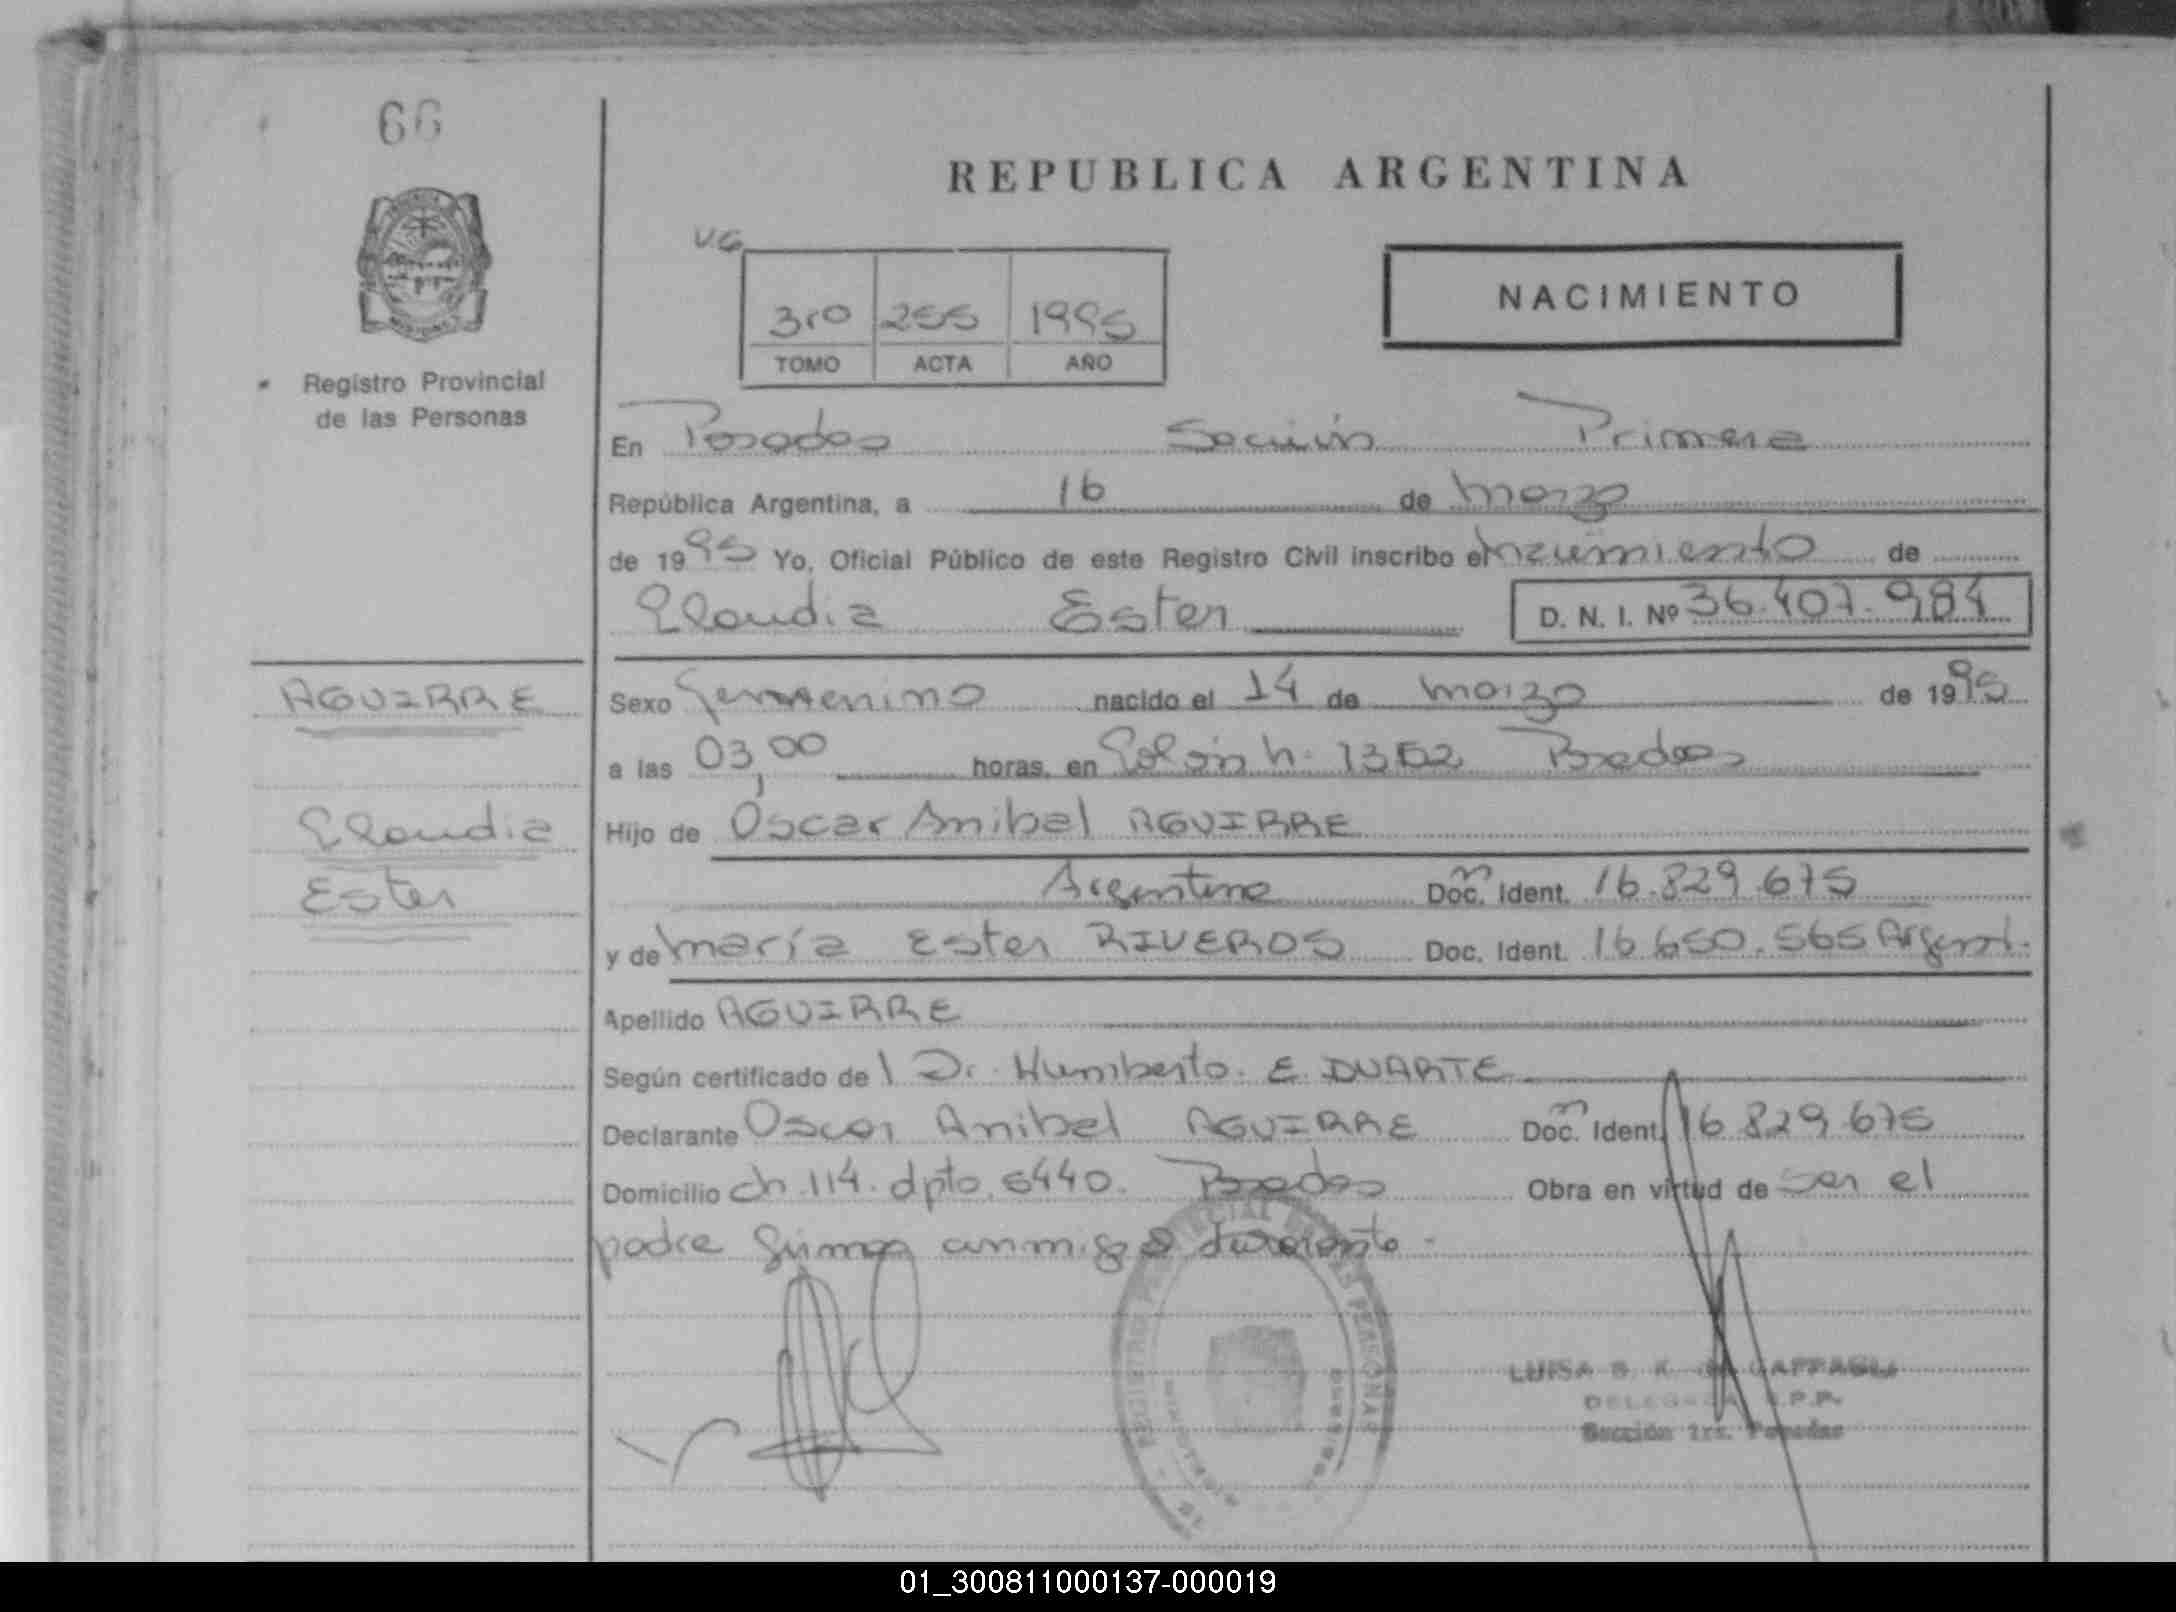 66
REPUBLICA ARGENTINA
V.G.
NACIMIENTO
3ro 255 1995
TOMO ACTA AÑO
Registro Provincial
de las Personas
En Posadas Sección Primera
República Argentina, a 16 de marzo
de 1995 Yo, Oficial Público de este Registro Civil inscribo el nacimiento de
Claudia Ester D. N. I. Nº 36.407.984
AGUIRRE
Sexo femenino nacido el 14 de marzo de 1995
a las 03,00 horas, en Colón n. 1352 Posadas
Claudia
Hijo de Oscar Anibal AGUIRRE
Ester
Argentino Doc. Ident. 16.829.675
y de María Ester RIVEROS Doc. Ident. 16.650.565 Argent.
Apellido AGUIRRE
Según certificado del Dr. Humberto. E. DUARTE
Declarante Oscar Anibal AGUIRRE Doc. Ident. 16.829.675
Domicilio ch. 114. dpto. 6440. Posadas Obra en virtud de ser el
padre firma conmigo
REGISTRO PROVINCIAL DE LAS PERSONAS
MINISTERIO
LUISA B. K.
DELEGADA R.P.P.
Sección 1ra. Posadas
01_300811000137-000019